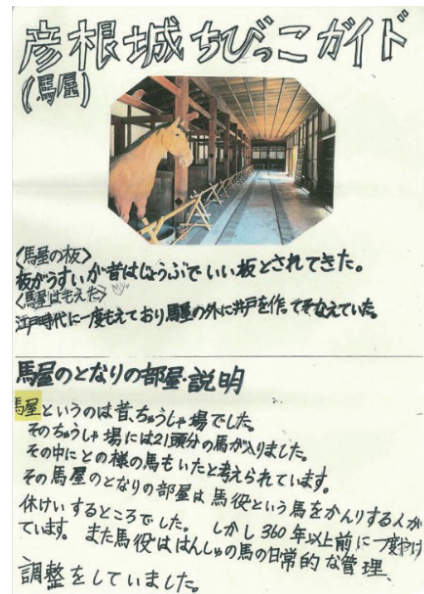 彦根城ちびっこガイド
(馬屋)
〈馬屋の板〉
板がうすいが昔はじょうぶでいい板とされてきた。
〈馬屋はもえた〉
江戸時代に一度もえており、馬屋の外に井戸を作ってそなえていた。
馬屋のとなりの部屋・説明
馬屋というのは昔、ちゅうしゃ場でした。
そのちゅうしゃ場には21頭分の馬が入りました。
その中にとの様の馬もいたと考えられています。
その馬屋のとなりの部屋は馬役という馬をかんりする人が
休けいするところでした。しかし360年以上前に一度やけ
ています。また馬役ははんしゅの馬の日常的な管理、
調整をしていました。